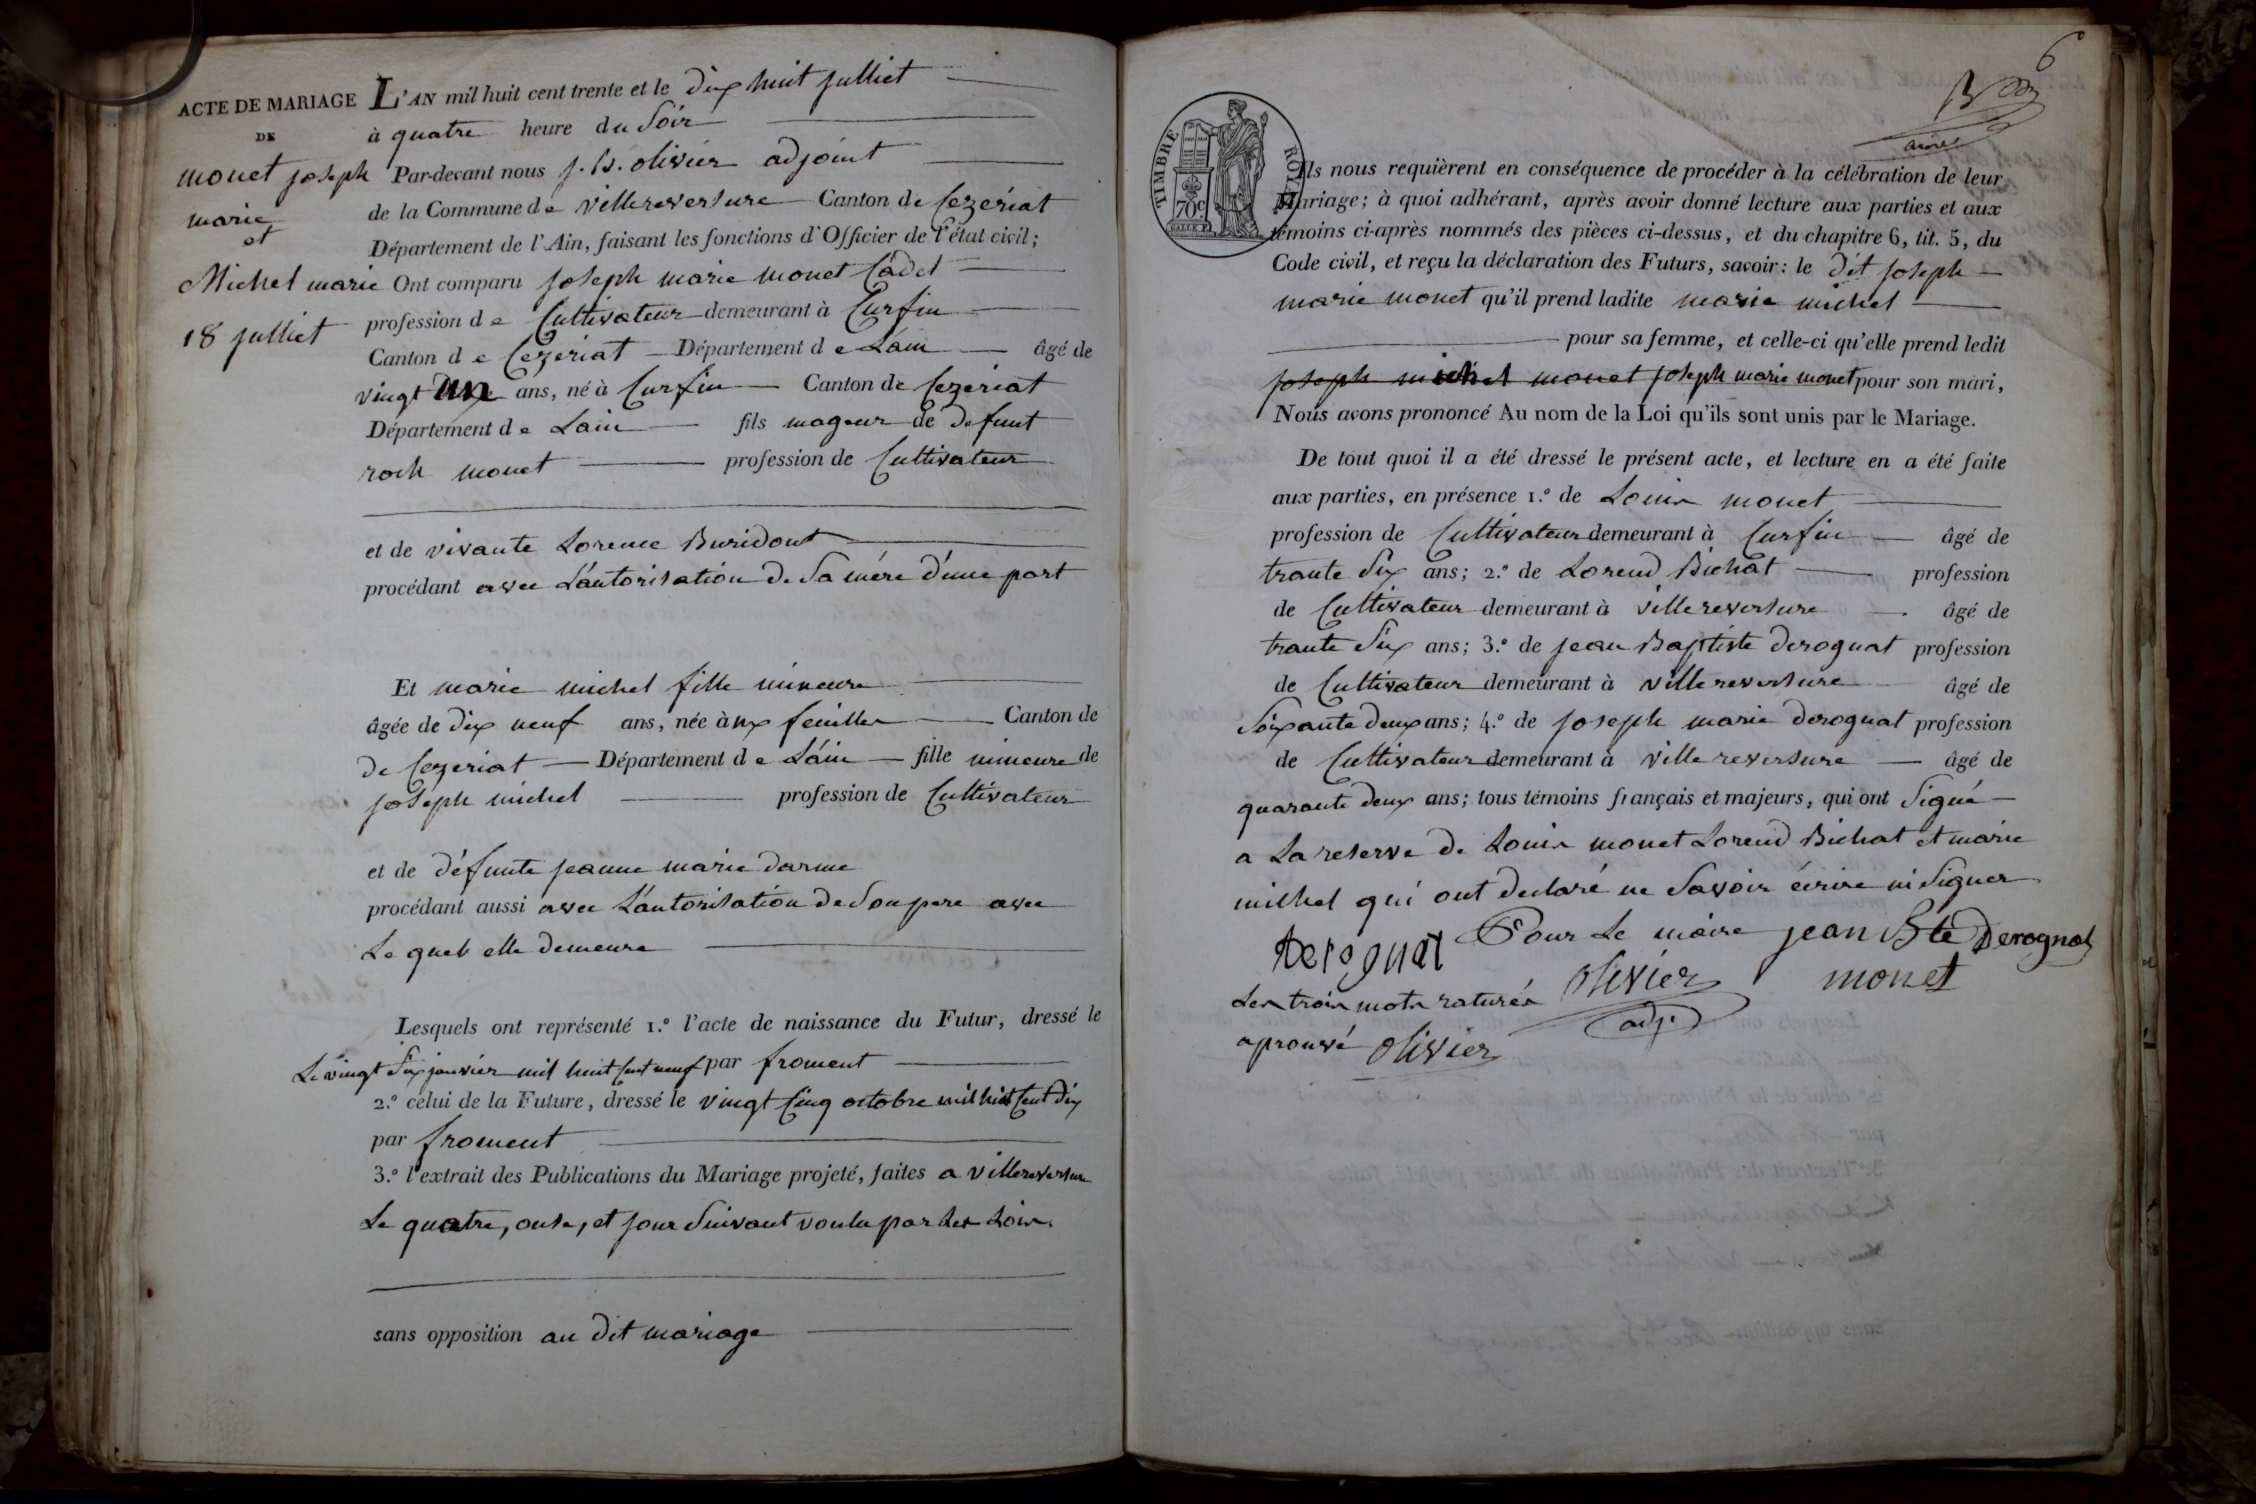 ACTE DE MARIAGE
DE
monet joseph
marie
et
Michel marie
18 julliet
L'AN mil huit cent trente et le dix huit julliet
à quatre heure du Soir
Par-devant nous j. B. olivier adjoint
de la Commune de villereversure Canton de Cezeriat
Département de l'Ain, faisant les fonctions d'Officier de l'état civil;
Ont comparu joseph marie monet Cadet
profession de Cultivateur demeurant à Curfin
Canton de Cezeriat Département de Lain âgé de
vingt un ans, né à Curfin Canton de Cezeriat
Département de Lain fils mageur de defunt
roch monet profession de Cultivateur
et de vivante Lorence Buridont
procédant avec L'autorisation de Sa mére d'une part
Et marie michel fille mineure
âgée de dix neuf ans, née à nx feuilles Canton de
de Cezeriat Département de L'ain fille mineure de
joséph michel profession de Cultivateur
et de défunte jeanne marie darme
procédant aussi avec L'autorisation de Son pere avec
Le quel elle demeure
Lesquels ont représenté 1.º l'acte de naissance du Futur, dressé le
Le vingt Six janvier mil huit Cent neuf par froment
2.º celui de la Future, dressé le vingt Cinq octobre mil huit Cent dix
par froment
3.º l'extrait des Publications du Mariage projeté, faites a villereversure
Le quatre, onse, et jour Suivant voulu par Les Lois.
sans opposition au dit mariage
6
TIMBRE ROYAL
70c
Ils nous requièrent en conséquence de procéder à la célébration de leur
Mariage; à quoi adhérant, après avoir donné lecture aux parties et aux
témoins ci-après nommés des pièces ci-dessus, et du chapitre 6, tit. 5, du
Code civil, et reçu la déclaration des Futurs, savoir: le dit joseph
marie monet qu'il prend ladite marie michel
pour sa femme, et celle-ci qu'elle prend ledit
joseph michel monet joseph marie monet pour son mari,
Nous avons prononcé Au nom de la Loi qu'ils sont unis par le Mariage.
De tout quoi il a été dressé le présent acte, et lecture en a été faite
aux parties, en présence 1.º de Louis monet
profession de Cultivateur demeurant à Curfin âgé de
trante Six ans; 2.º de Lorend Bichat profession
de Cultivateur demeurant à villereversure âgé de
trante Six ans; 3.º de jean Baptiste derognat profession
de Cultivateur demeurant à villereversure âgé de
Soixante deux ans; 4.º de joseph marie derognat profession
de Cultivateur demeurant à villereversure âgé de
quarante deux ans; tous témoins français et majeurs, qui ont Signé
a La reserve de Louis monet Lorend Bichat et marie
michel qui ont declaré ne Savoir écrire ni Signer
Derognat Pour Le maire jean Bte Derognat
Les trois mots raturés olivier monet
adj.
aprouvé olivier